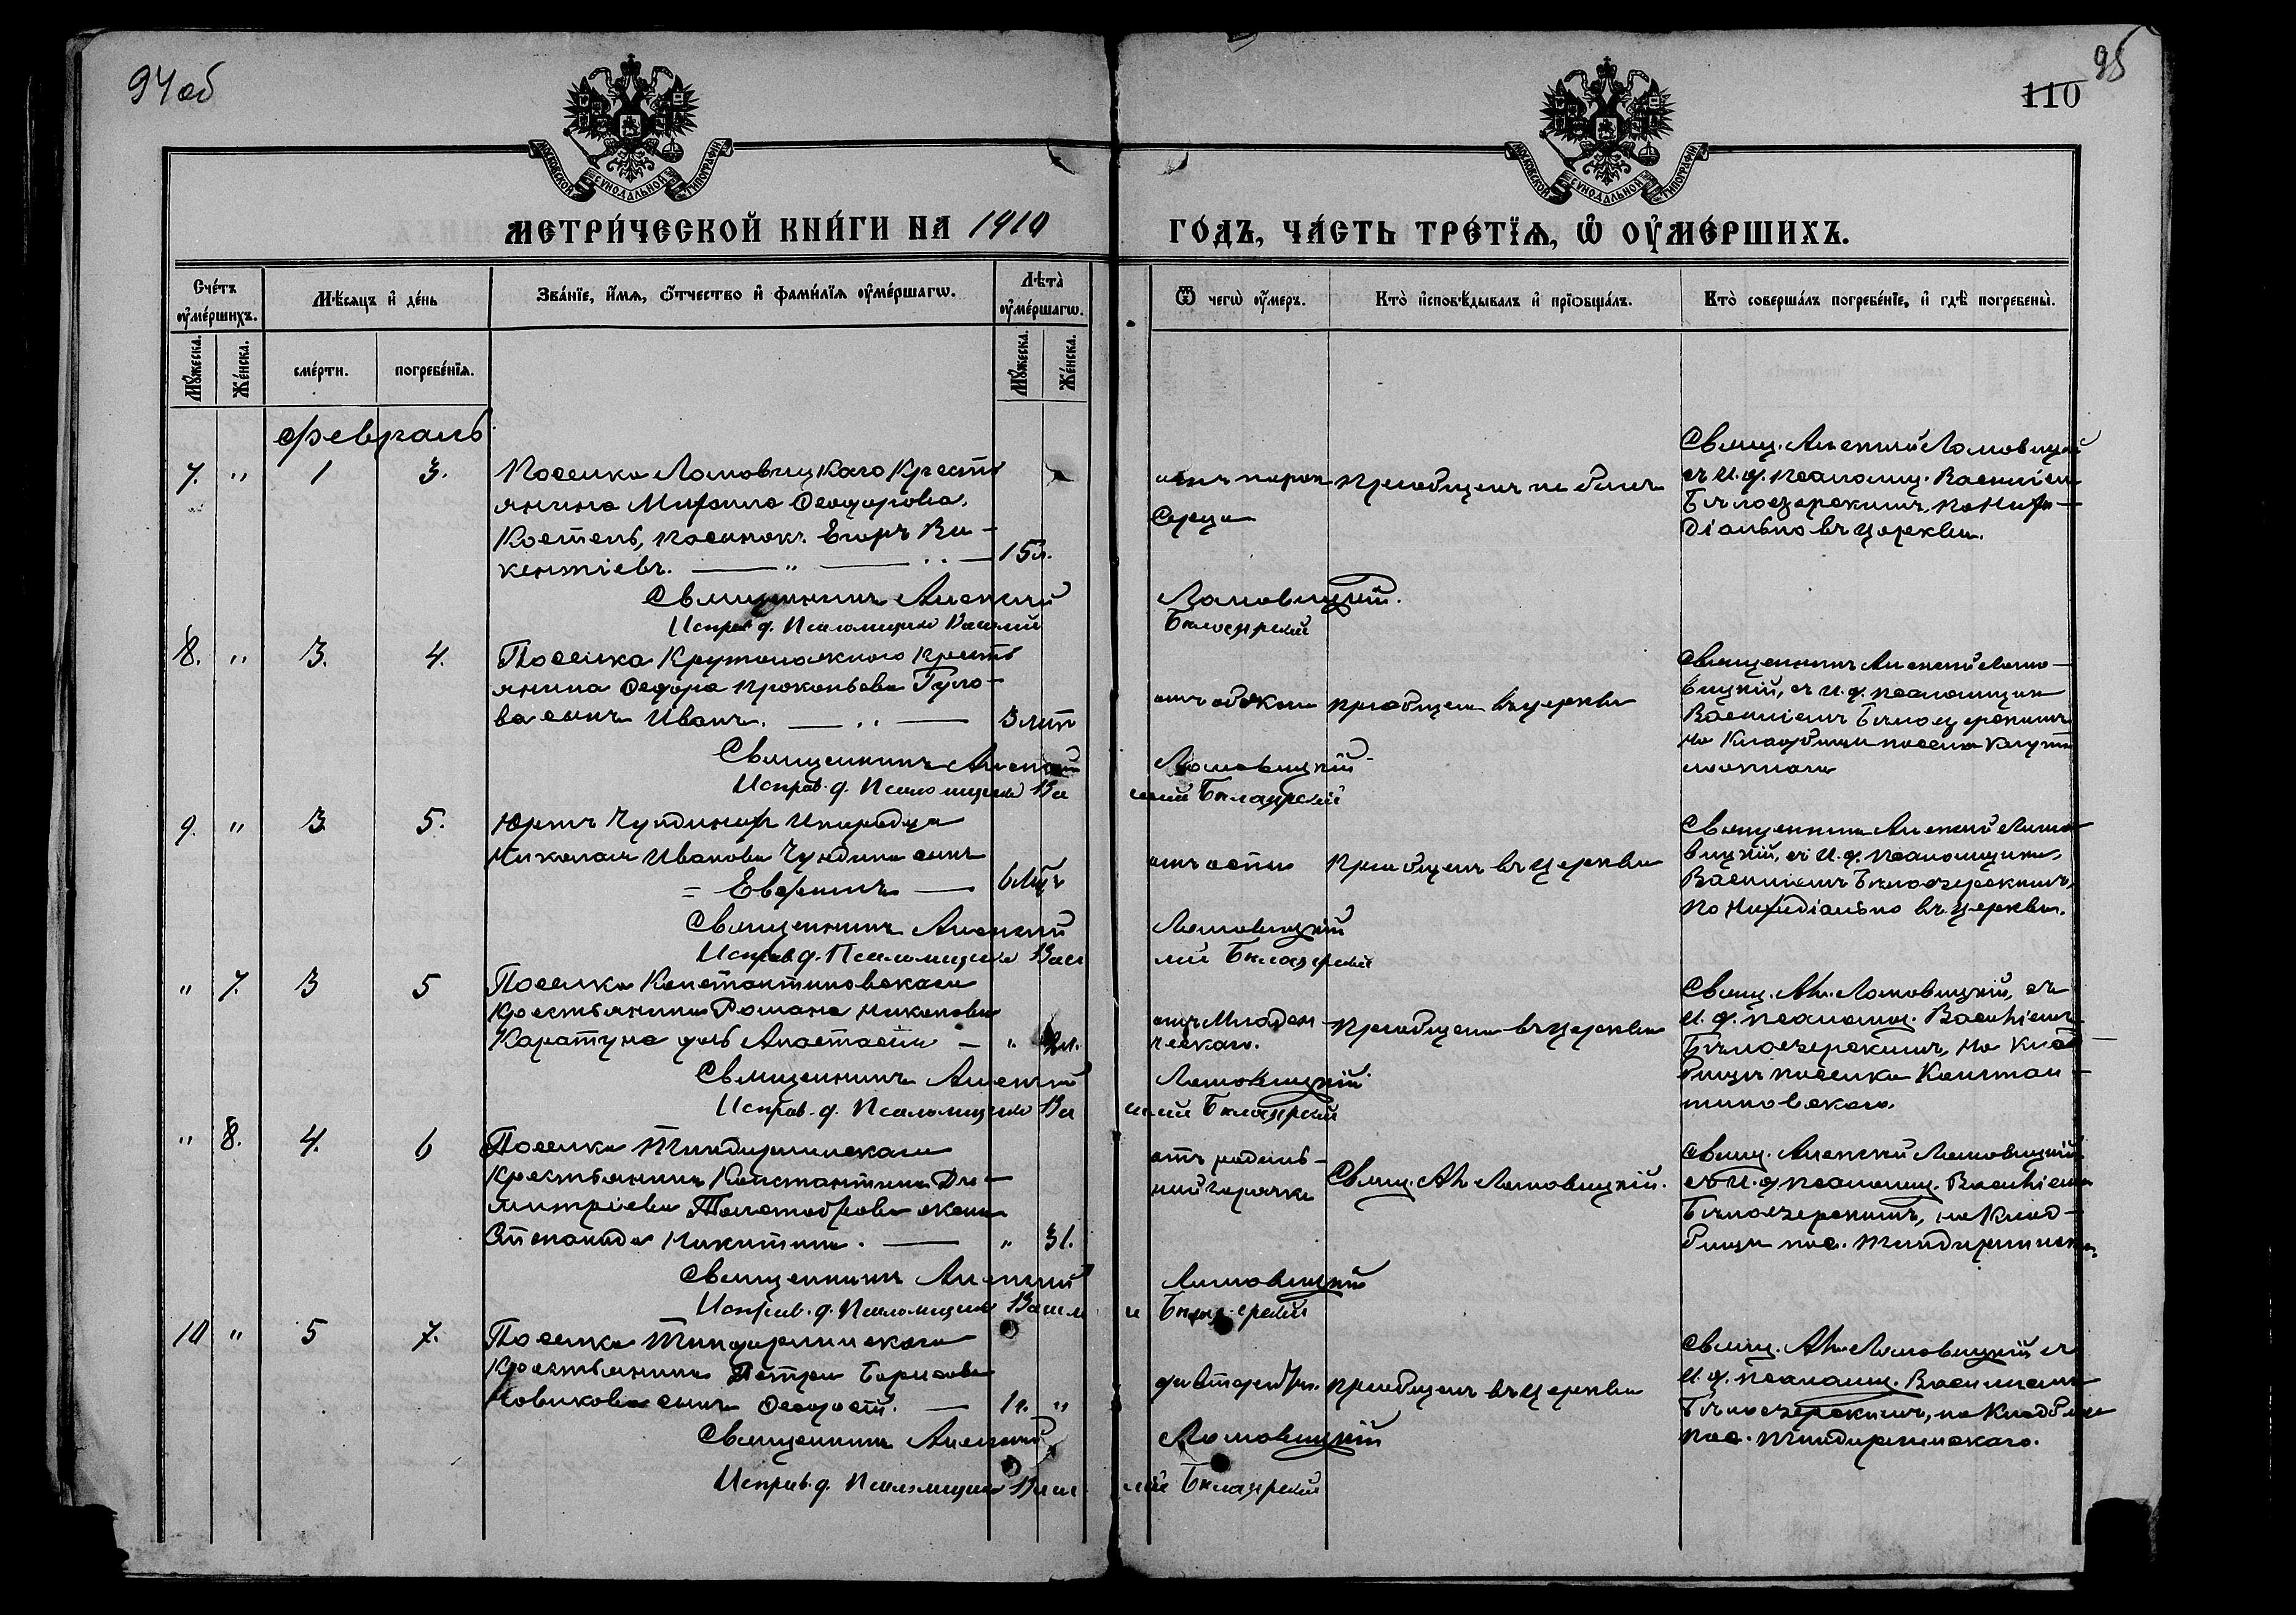 94 об
95
110
МОСКОВСКОЙ СѴНОДАЛЬНОЙ ТИПОГРАФІИ
МОСКОВСКОЙ СѴНОДАЛЬНОЙ ТИПОГРАФІИ
МЕТРИ́ЧЕСКОЙ КНИ́ГИ НА 1910 ГО́ДЪ, ЧА́СТЬ ТРЕ́ТІѦ, Ѡ҆ ОУ҆МЕ́РШИХЪ.
Сче́тъ оу҆ме́ршихъ.
Мѣ́сяцъ и҆ де́нь
Зва́нїе, и҆́мѧ, ѻ҆́тчество и҆ фами́лїѧ оу҆ме́ршагѡ.
Лѣ́та оу҆ме́ршагѡ.
Ѿ чегѡ̀ оу҆́меръ.
Кто̀ и҆сповѣ́дывалъ и҆ прїѡбща́лъ.
Кто̀ соверша́лъ погребе́нїе, и҆ гдѣ̀ погребены̀.
Мꙋ́жеска.
Же́нска.
сме́рти.
погребе́нїѧ.
Мꙋ́жеска.
Же́нска.
Февраль
7. " 1 3.
Поселка Ломовицкаго Кресть
янина Феодорова
Костель, Егоръ Ви-
кентіевъ. — " — 15 л.
сердца
Пріобщенъ не былъ
Свящ. Алексій Ломовицкій
съ И. д. псаломщ. Василіем
Бѣлозерскимъ,
въ церкви.
Священникъ Алексій Ломовицкій.
Исправ. д. Псаломщика Василій Бѣлозерскій
8. " 3. 4.
Поселка Кресть
янина Федора Прокопьева
ва сынъ Иванъ. — " — 3 лѣт
отъ
пріобщенъ въ церкви
Священникъ Алексій Ломо-
вицкій, съ И. д. псаломщика
Василіемъ Бѣлозерскимъ
на Кладбищѣ поселка
Священникъ Алексій Ломовицкій
Исправ. д. Псаломщика Василий Бѣлозерскій
9. " 3 5.
Николая Иванова сынъ
= — 6
отъ оспы
Пріобщенъ въ церкви
Священникъ Алексій Ломо
вицкій, съ И. д. псаломщика,
Василіемъ Бѣлозерскимъ,
въ церкви.
Священникъ Алексій Ломовицкій
Исправ. д. Псаломщика Василій Бѣлозерскій
" 7. 3 5
Поселка Константиновскаго
Крестьянина Романа
Каратуна дочь Анастасія — "
отъ Младен-
ческаго.
Пріобщена въ церкви
Свящ. Ал. Ломовицкій, съ
И. д. псаломщ. Василіемъ
Бѣлозерскимъ, на Клад-
бищѣ поселка Констан-
тиновскаго.
Священникъ Алексій Ломовицкій
Исправ. д. Псаломщика Василий Бѣлозерскій
" 8. 4. 6
Поселка
Крестьянина Константина Ди-
митріева жена
Никитина. — " 31.
отъ родиль-
ной горячки
Свящ. Ал. Ломовицкій.
Свящ. Алексій Ломовицкій
съ И. д. псаломщ. Василіемъ
Бѣлозерскимъ, на Клад-
бищѣ пос.
Священникъ Алексій Ломовицкій
Исправ. д. Псаломщика Василий Бѣлозерскій
10 " 5 7.
Поселка
Крестьянина Петра Борисова
Новикова сынъ Феодосій. — 1 г. "
Пріобщенъ въ церкви
Свящ. Ал. Ломовицкій съ
И. д. псаломщ. Василіемъ
Бѣлозерскимъ, на Кладбищѣ
пос.
Священникъ Алексій Ломовицкій
Исправ. д. Псаломщика Василій Бѣлозерскій